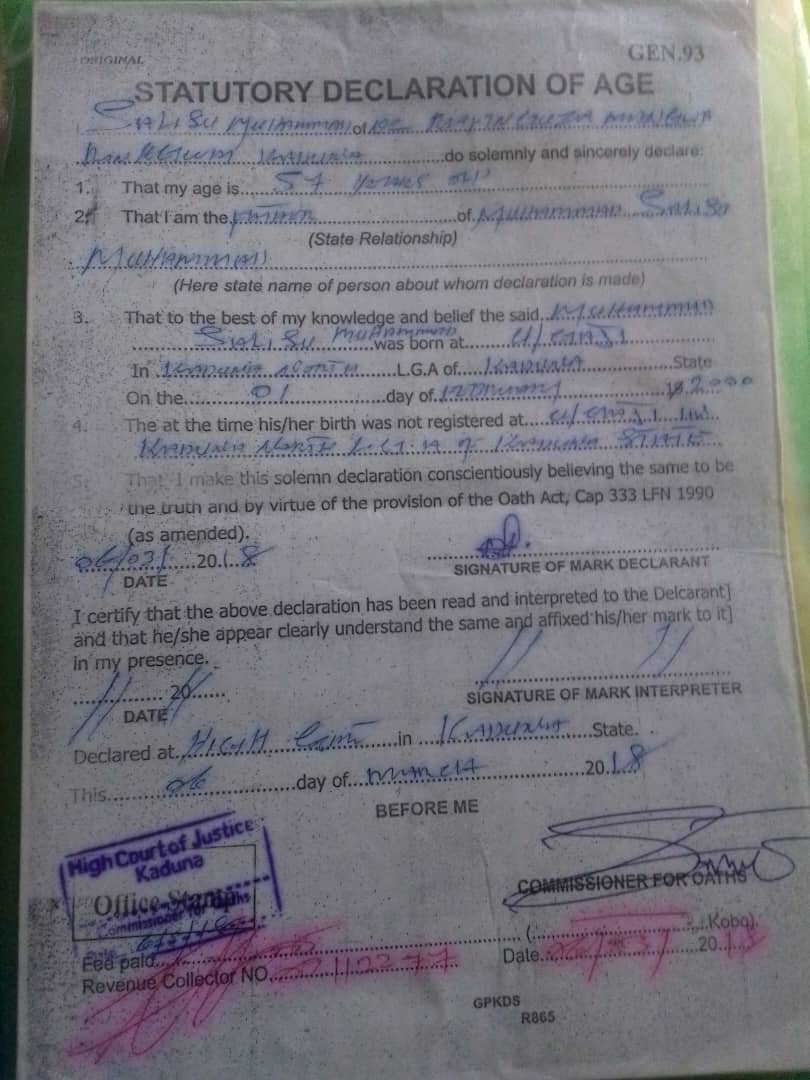 ORIGINAL
GEN.93
STATUTORY DECLARATION OF AGE
SALISU MUHAMMAD of
KADUNA do solemnly and sincerely declare:
1. That my age is 57 YEARS OLD
2. That I am the FATHER of MUHAMMAD SALISU
(State Relationship)
MUHAMMAD
(Here state name of person about whom declaration is made)
3. That to the best of my knowledge and belief the said MUHAMMAD
SALISU MUHAMMAD was born at
In KADUNA NORTH L.G.A of KADUNA State
On the 01 day of 2000
4. The at the time his/her birth was not registered at
KADUNA NORTH L.G.A of KADUNA STATE
5. That I make this solemn declaration conscientiously believing the same to be
the truth and by virtue of the provision of the Oath Act, Cap 333 LFN 1990
(as amended).
06/03/2018
DATE
SIGNATURE OF MARK DECLARANT
I certify that the above declaration has been read and interpreted to the Delcarant]
and that he/she appear clearly understand the same and affixed his/her mark to it]
in my presence.
20
DATE
SIGNATURE OF MARK INTERPRETER
Declared at HIGH COURT in KADUNA State.
This 06 day of MARCH 2018
BEFORE ME
High Court of Justice
Kaduna
Office Stamp
Commissioner for Oaths
COMMISSIONER FOR OATHS
Fee paid ( Kobo)
Revenue Collector NO. Date 20
GPKDS
R865